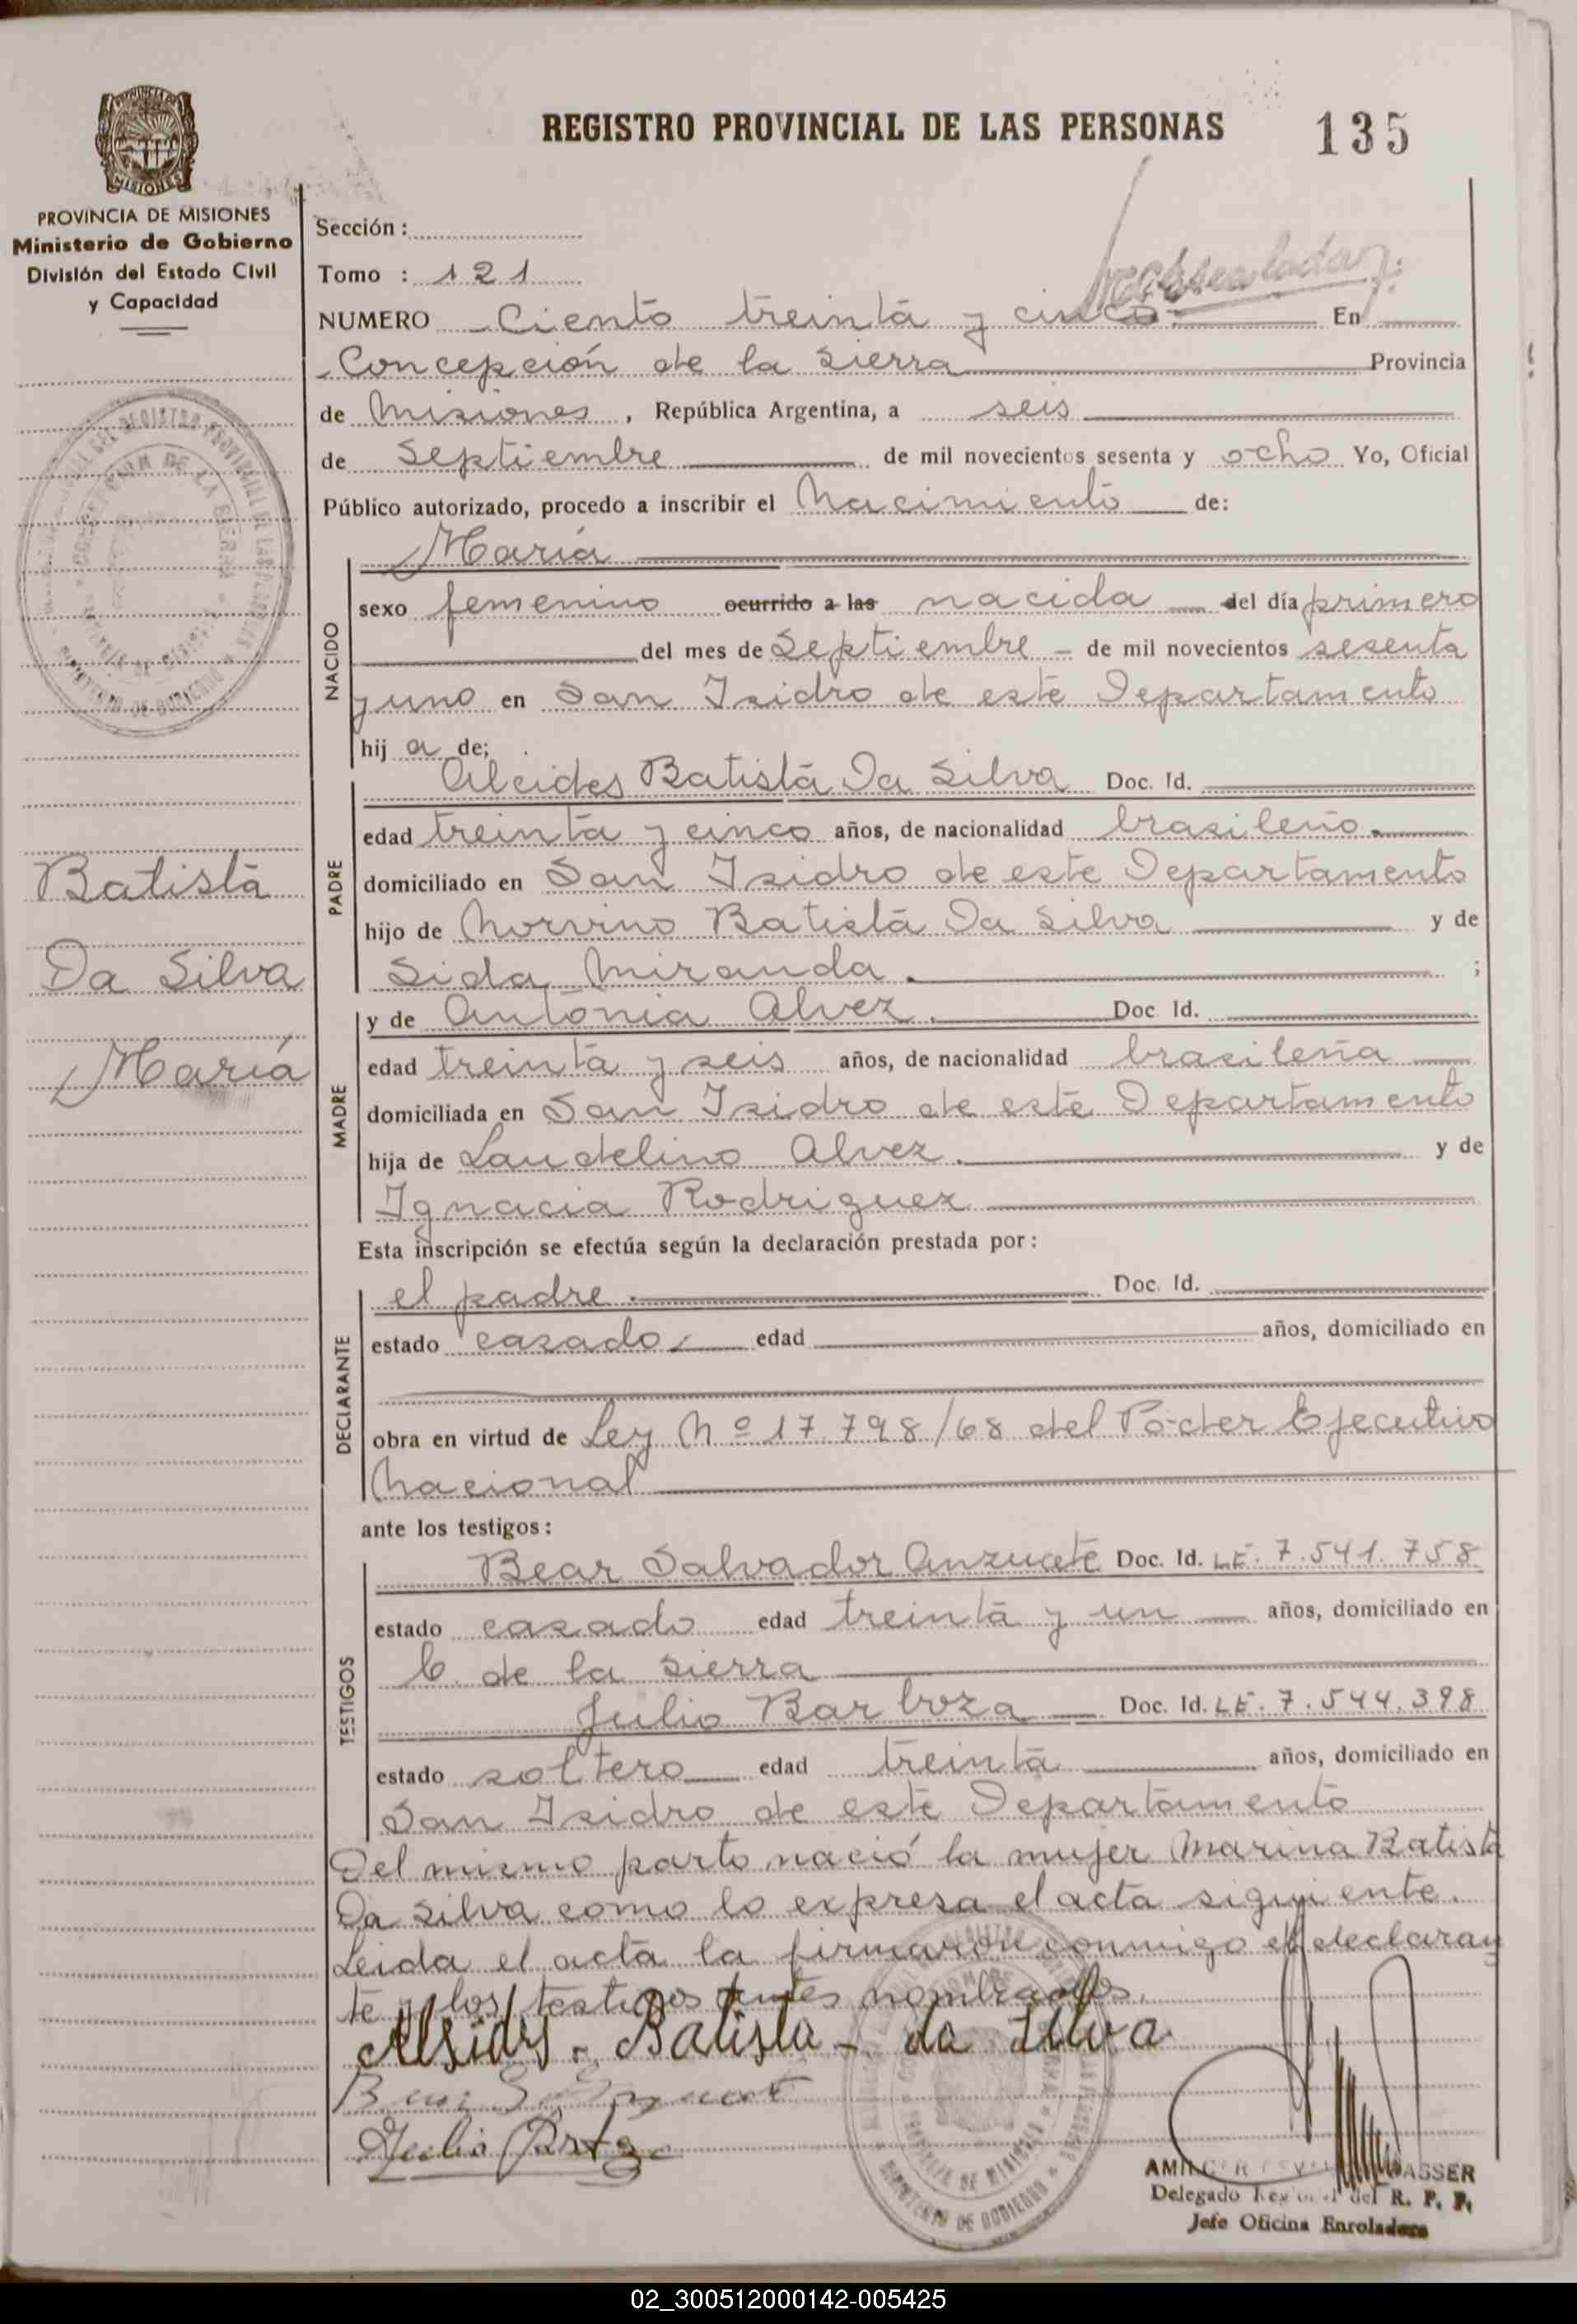 REGISTRO PROVINCIAL DE LAS PERSONAS 135
PROVINCIA DE MISIONES
Ministerio de Gobierno
División del Estado Civil
y Capacidad
Sección:
Tomo : 121
NUMERO Ciento treinta y cinco En
Concepción de la Sierra Provincia
de Misiones, República Argentina, a seis
de Septiembre de mil novecientos sesenta y ocho Yo, Oficial
Público autorizado, procedo a inscribir el Nacimiento de:
María
NACIDO
sexo femenino ocurrido a las nacida del día primero
del mes de Septiembre de mil novecientos sesenta
y uno en San Isidro de este Departamento
hij a de;
PADRE
Alcides Batista Da Silva Doc. Id.
edad treinta y cinco años, de nacionalidad brasileño.
domiciliado en San Isidro de este Departamento
hijo de Norvino Batista Da Silva y de
Sida Miranda. ;
Batista
Da Silva
María
MADRE
y de Antonia Alvez. Doc. Id.
edad treinta y seis años, de nacionalidad brasileña
domiciliada en San Isidro de este Departamento
hija de Laudelino Alvez. y de
Ignacia Rodriguez
Esta inscripción se efectúa según la declaración prestada por:
DECLARANTE
el padre. Doc. Id.
estado casado edad años, domiciliado en
obra en virtud de Ley Nº 17.798/68 del Poder Ejecutivo
Nacional
ante los testigos:
TESTIGOS
Bear Salvador Anzuate Doc. Id. LE. 7.541.758
estado casado edad treinta y un años, domiciliado en
C. de la Sierra
Julio Barboza Doc. Id. LE. 7.544.398
estado soltero edad treinta años, domiciliado en
San Isidro de este Departamento
Del mismo parto nació la mujer Marina Batista
Da Silva como lo expresa el acta siguiente.
Leida el acta la firmaron conmigo el declaran
te y los testigos antes nombrados.
Alsides. Batista - da Silva
Julio
Delegado Regional del R. P. P.
Jefe Oficina Enroladora
02_300512000142-005425